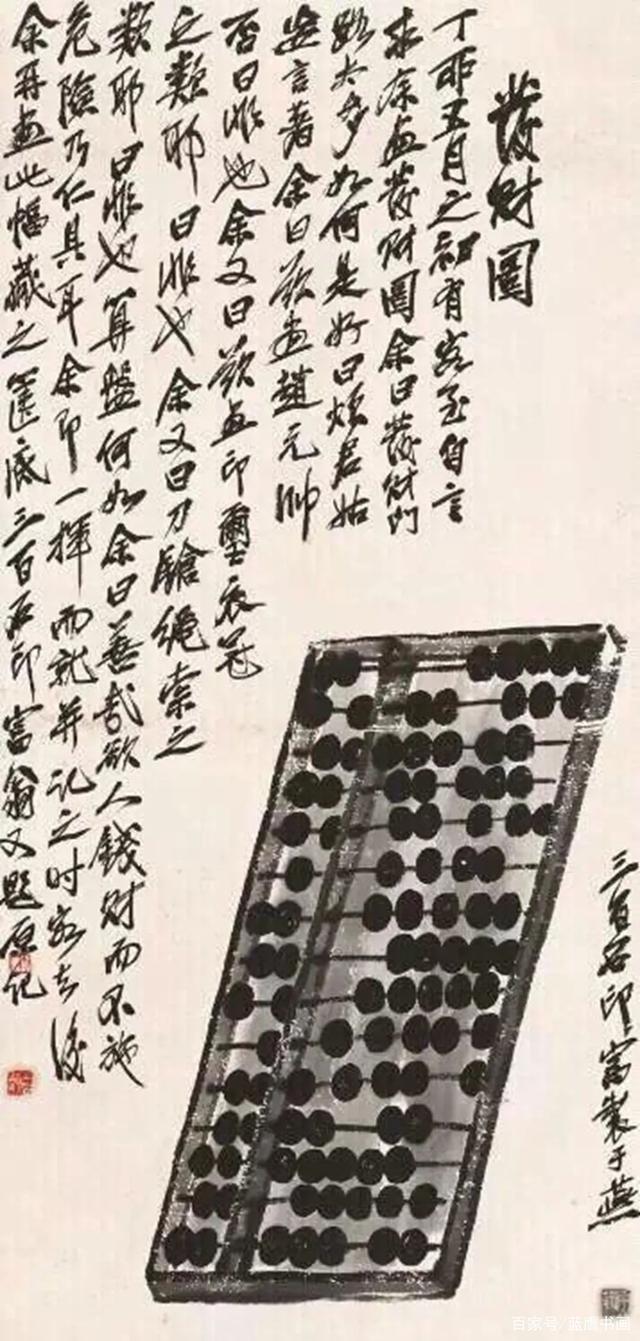 發財圖
丁卯五月之初有客至自言
求余畫發財圖余曰發財門
路太多如何是好曰煩君姑
妄言著余曰欲畫趙元帥
否曰非也余又曰欲畫印璽衣冠
之類耶曰非也余又曰刀鎗繩索之
類耶曰非也算盤何如余曰善哉欲人錢財而不施
危險乃仁具耳余即一揮而就并記之时客去後
余再畫此幅藏之篋底三百石印富翁又題原記
三百石印富製于燕
百家号/蓝鹰书画